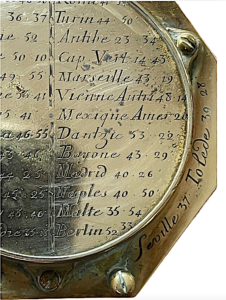 36 37 Turin 44 50
52 Antibe 23 34
50 10 Cap Vert 14 43
49 55 Marseille 43 19
35 41 Vienne Autri 48 14
35 41 Mexique Amer 20
46 55 Dantzic 53 22
40 Bayone 43 29
44 23 Madrid 40 26
24 25 Naples 40 50
45 40 Malte 35 54
Berlin 52 33
Seville 37 Tolede 39 28